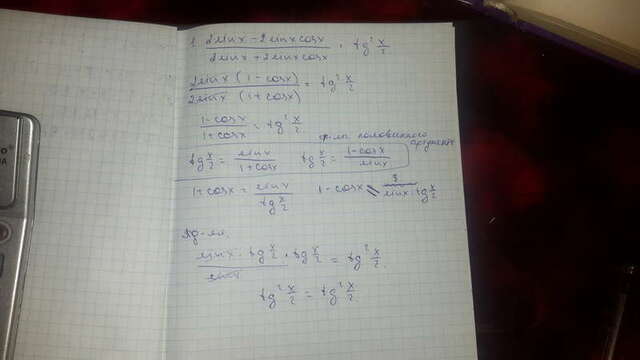 1. (2sinx - 2sinxcosx)/(2sinx + 2sinxcosx) = tg² x/2
(2sinx (1-cosx))/(2sinx (1+cosx)) = tg² x/2
(1-cosx)/(1+cosx) = tg² x/2
ф-лы половинного аргумента
tg x/2 = sinx/(1+cosx) tg x/2 = (1-cosx)/sinx
1+cosx = sinx/(tg x/2) 1-cosx = sinx · tg x/2
(sinx · tg x/2 · tg x/2)/sinx = tg² x/2.
tg² x/2 = tg² x/2.